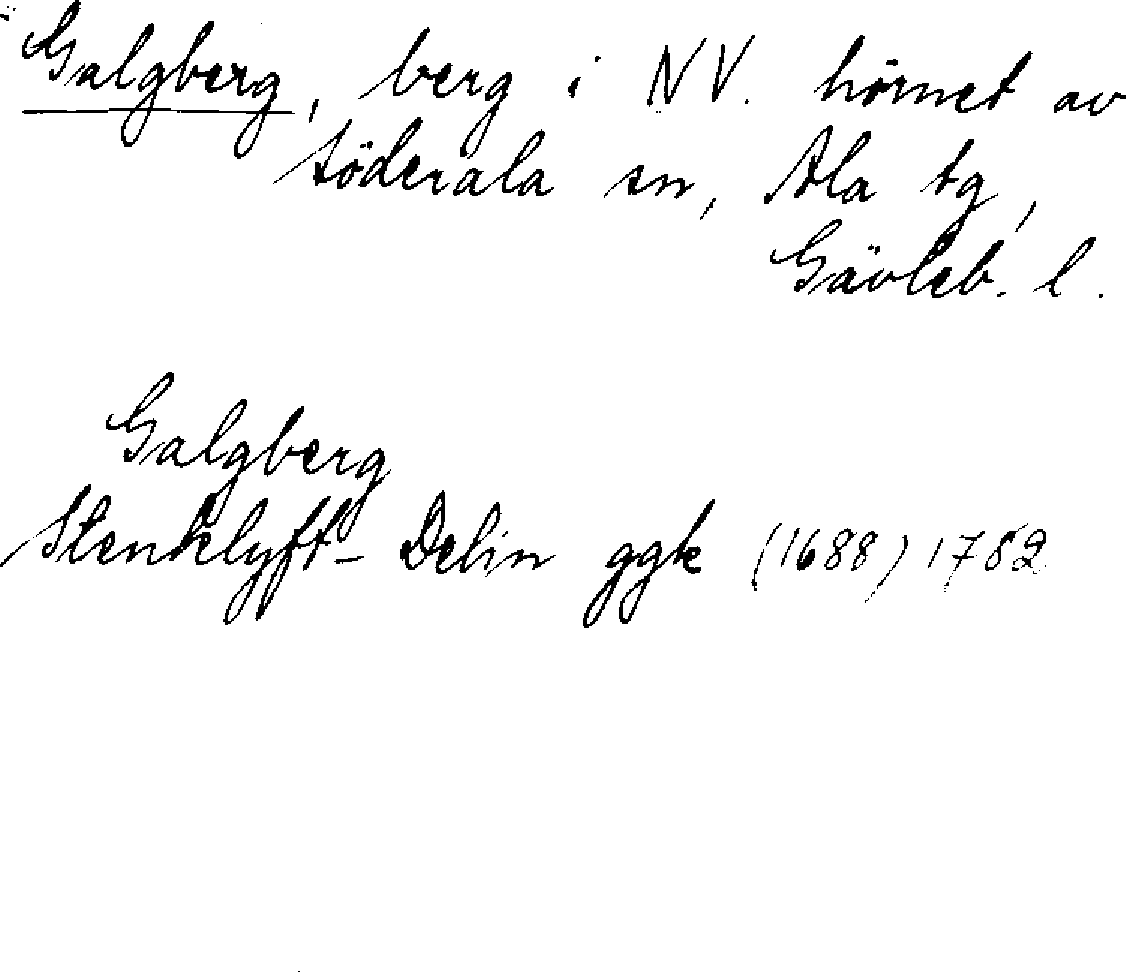 Galgberg, berg i NV. hörnet av
Söderala sn, Ala tg,
Gävleb. l.
Galgberg
Stenklyft- Delin ggk (1688) 1782